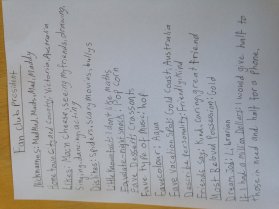 Fan club president
Nicknames: MadMad, Mads, Mad, Maddy
Fave favourite city and Country: Victoria, Australia
Likes: Mac n Cheese, seeing my friends, drawing,
singing, dancing, acting
Dislikes: Spiders, scary movies, bullys
Little known facts: I don't like maths
Favourite night snack: Pop Corn
Fave Dessert: Crossants
Fave type of Music: Pop
Fave colour: aqua
Fave Vacation spot: Gold Coast, Australia
Describe personality: Friendly, kind
Friends say: Kind, caring, great friend
Most Beloved Possession: Gold
Dream Job: Librarian
If I had a million Dollars: I would give half to
those in need and half for a Phone,